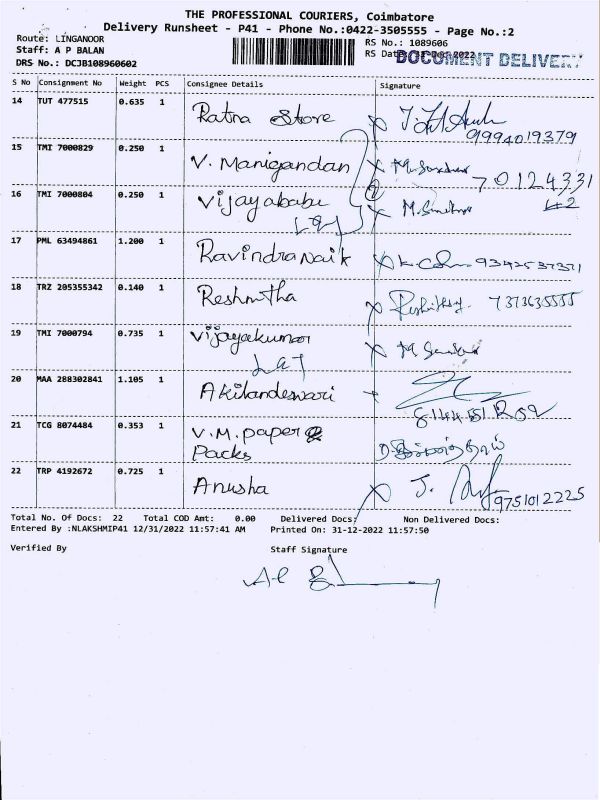 THE PROFESSIONAL COURIERS, Coimbatore
Delivery Runsheet - P41 - Phone No.:0422-3505555 - Page No.:2
Route: LINGANOOR
RS No.: 1089606
Staff: A P BALAN
RS Date
DOCUMENT DELIVERY
DRS No.: DCJB108960602
S No Consignment No Weight PCS Consignee Details Signature
14 TUT 477515 0.635 1 Ratna Store
9994019379
15 TMI 7000829 0.250 1 V. Manigandan
70124331
16 TMI 7000804 0.250 1 Vijayababu
42
17 PML 63494861 1.200 1 Ravindranaik
18 TRZ 205355342 0.140 1 Reshmitha 7373635555
19 TMI 7000794 0.735 1 Vijayakumar
20 MAA 288302841 1.105 1 Akilandeswari
21 TCG 8074484 0.353 1 V.M. paper
Packs
22 TRP 4192672 0.725 1 Anusha J.
9751012225
Total No. Of Docs: 22 Total COD Amt: 0.00 Delivered Docs: Non Delivered Docs:
Entered By :NLAKSHMIP41 12/31/2022 11:57:41 AM Printed On: 31-12-2022 11:57:50
Verified By Staff Signature